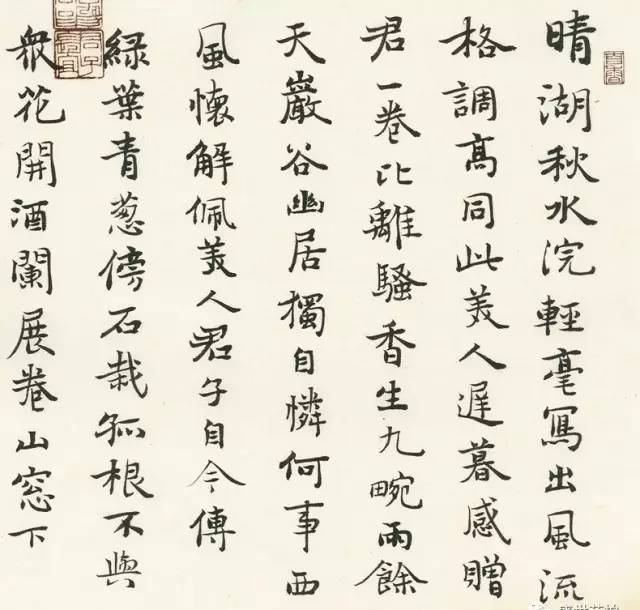 晴湖秋水浣輕毫寫出風流
格調高同此美人遲暮感贈
君一卷比離騷香生九畹雨餘
天巖谷幽居獨自憐何事西
風懷解佩美人君子自今傳
綠葉青蔥傍石栽孤根不與
眾花開酒闌展卷山窓下